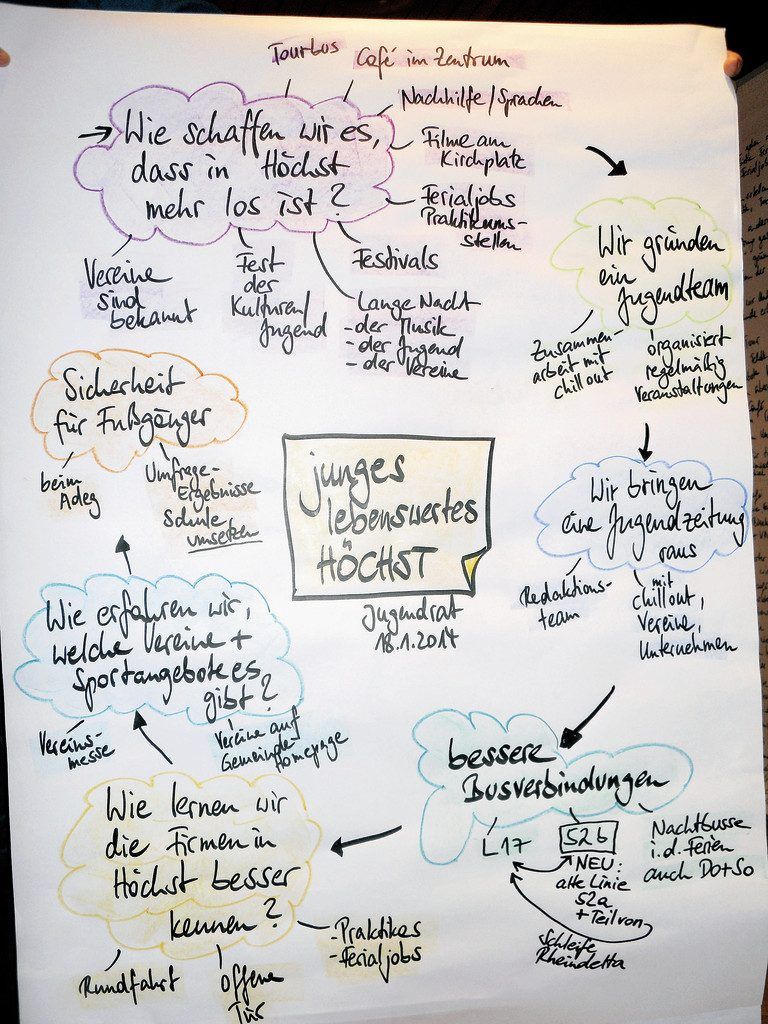 Tourbus
Café im Zentrum
Nachhilfe/Sprachen
Wie schaffen wir es,
dass in Höchst
mehr los ist?
Filme am
Kirchplatz
Ferialjobs
Praktikums-
stellen
Vereine
sind
bekannt
Fest
der
Kulturen/
Jugend
Festivals
Lange Nacht
- der Musik
- der Jugend
- der Vereine
Wir gründen
ein
Jugendteam
Zusammen-
arbeit mit
chillout
organisiert
regelmäßig
Veranstaltungen
Sicherheit
für Fußgänger
beim
Adeg
Umfrage-
Ergebnisse
Schule
umsetzen
junges
lebenswertes
HÖCHST
Jugendrat
18.1.2014
Wir bringen
eine Jugendzeitung
raus
Redaktions-
team
mit
chillout,
Vereine,
Unternehmen
Wie erfahren wir,
welche Vereine +
Sportangebote es
gibt?
Vereins-
messe
Vereine auf
Gemeinde-
homepage
bessere
Busverbindungen
L17
52b
NEU:
alte Linie
52a
+ Teil von
Schleife
Rheindelta
Nachtbusse
i.d. Ferien
auch Do+So
Wie lernen wir
die Firmen in
Höchst besser
kennen?
Rundfahrt
Offene
Tür
- Praktikas
- Ferialjobs